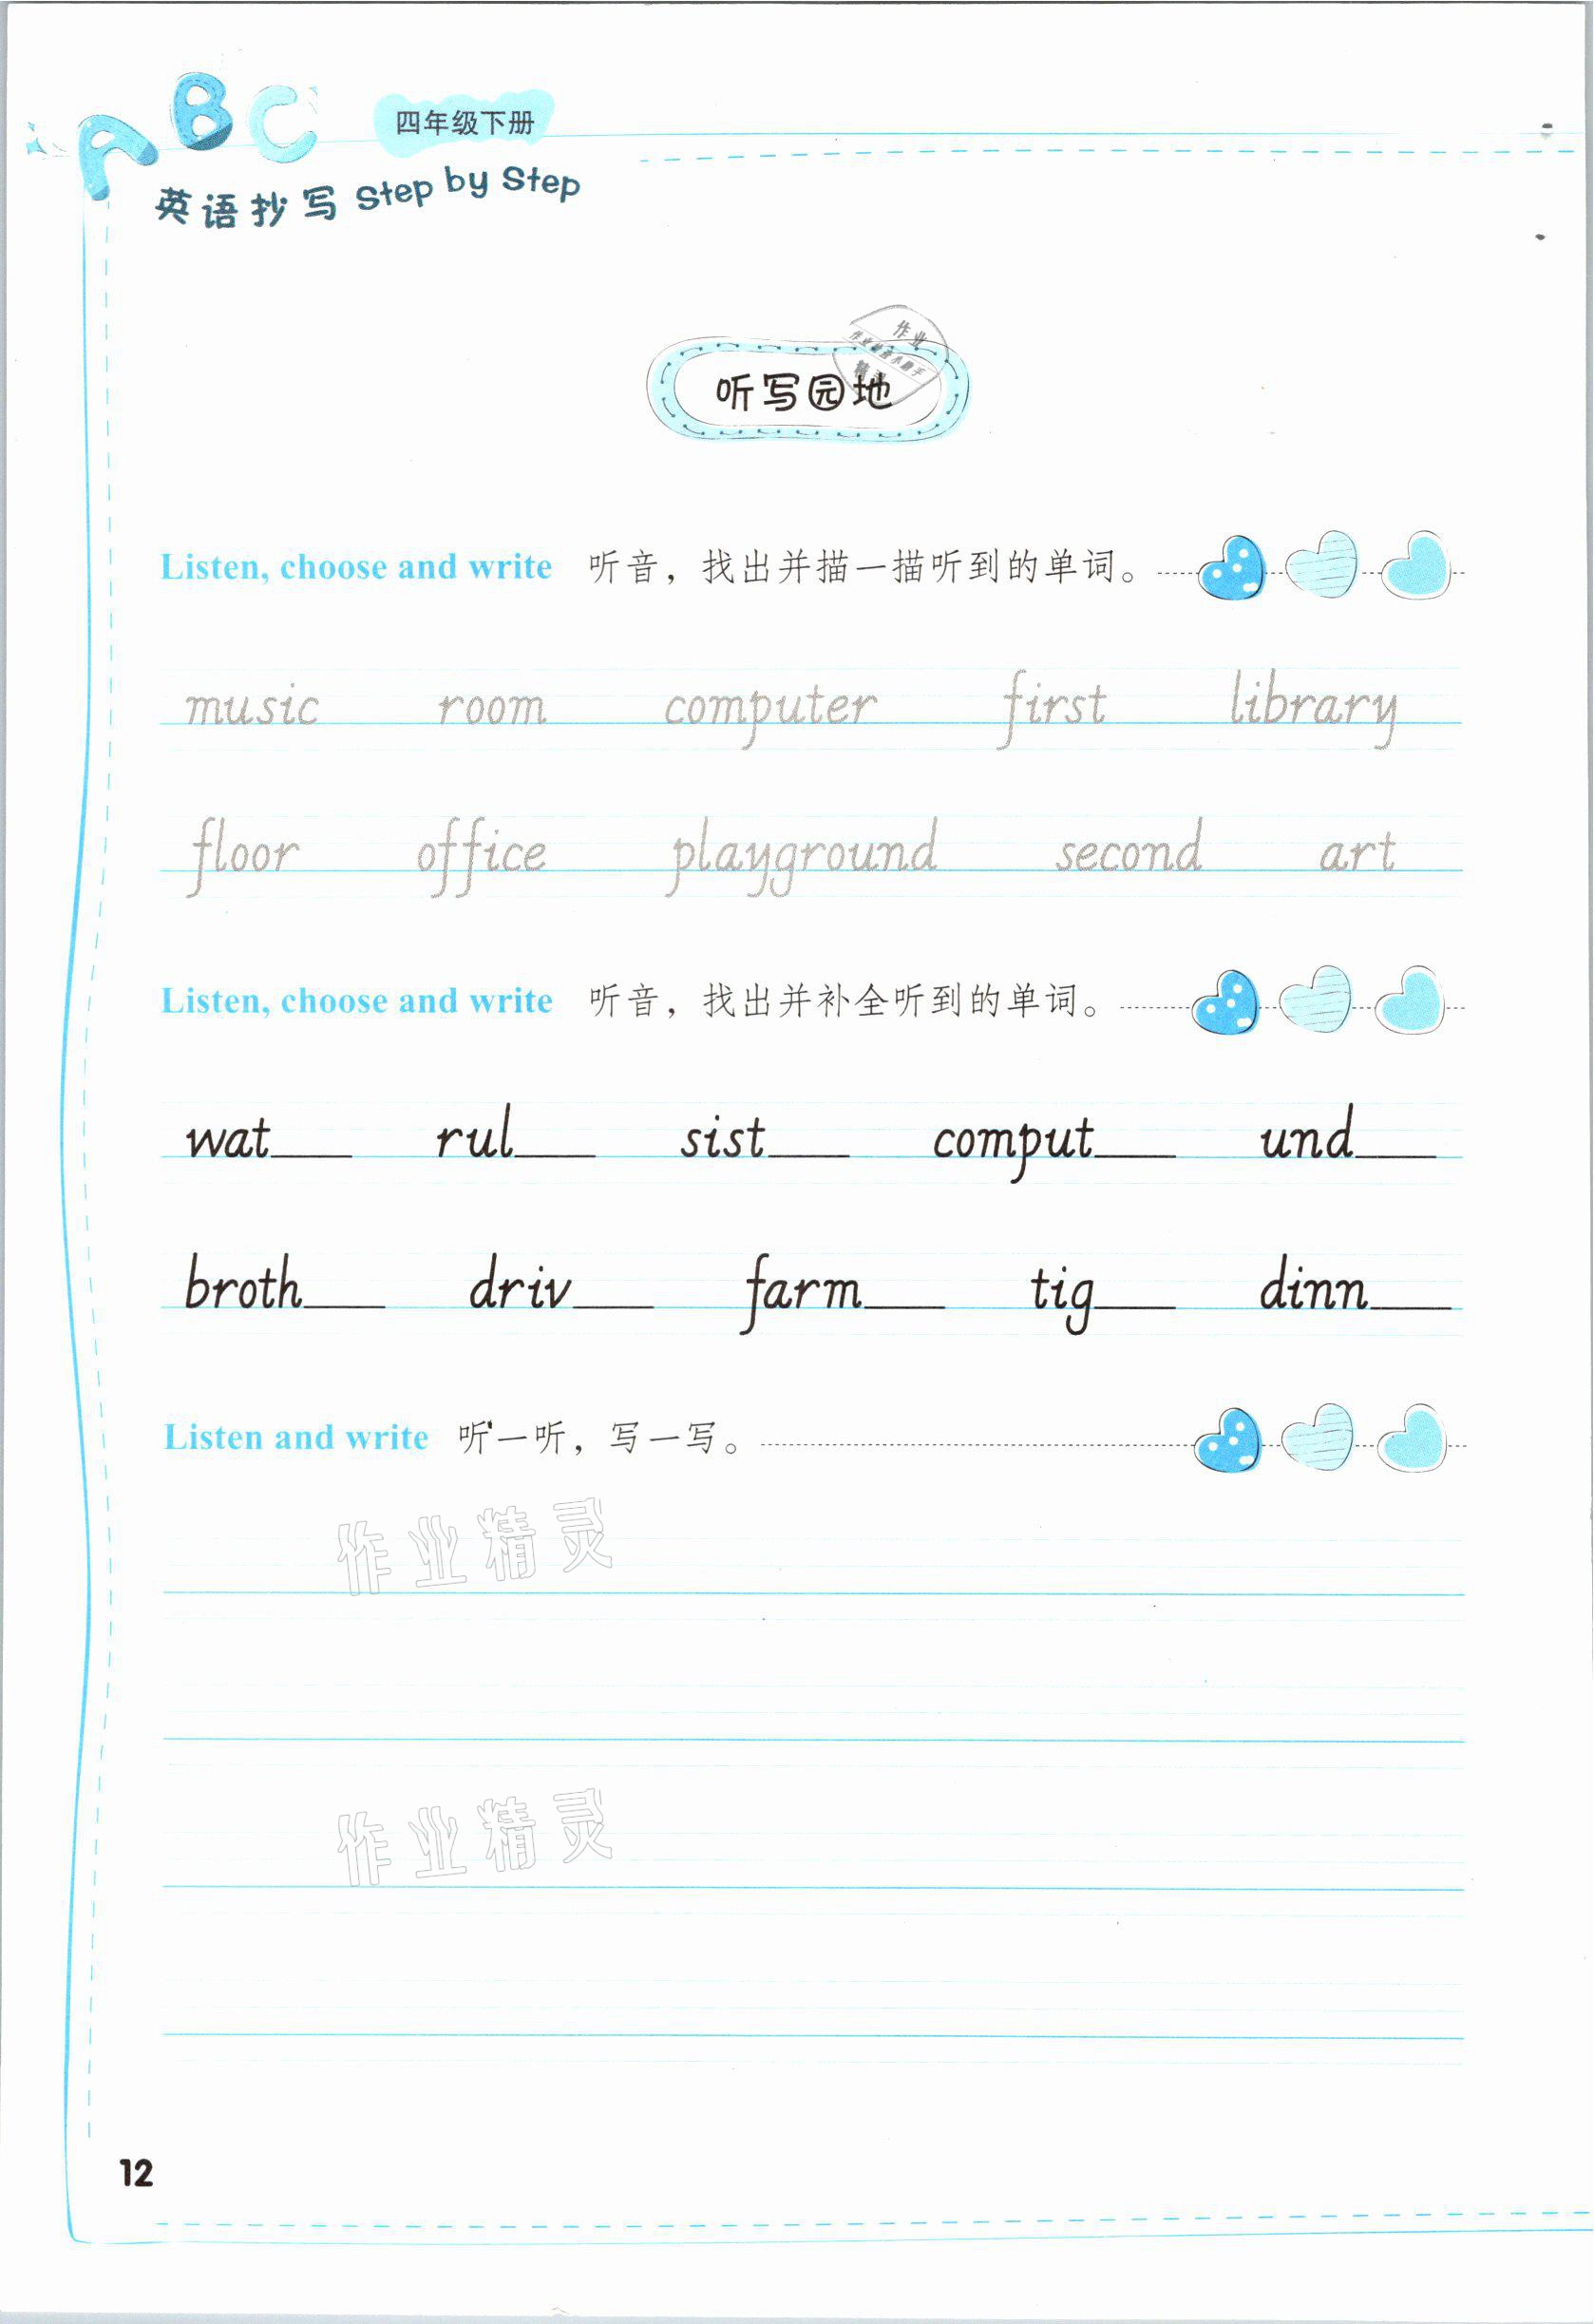 ABC
四年级下册
英语抄写 Step by Step
作业
作业精灵小助手
精灵
听写园地
Listen, choose and write 听音，找出并描一描听到的单词。
music room computer first library
floor office playground second art
Listen, choose and write 听音，找出并补全听到的单词。
wat___ rul___ sist___ comput___ und___
broth___ driv___ farm___ tig___ dinn___
Listen and write 听一听，写一写。
作业精灵
作业精灵
12